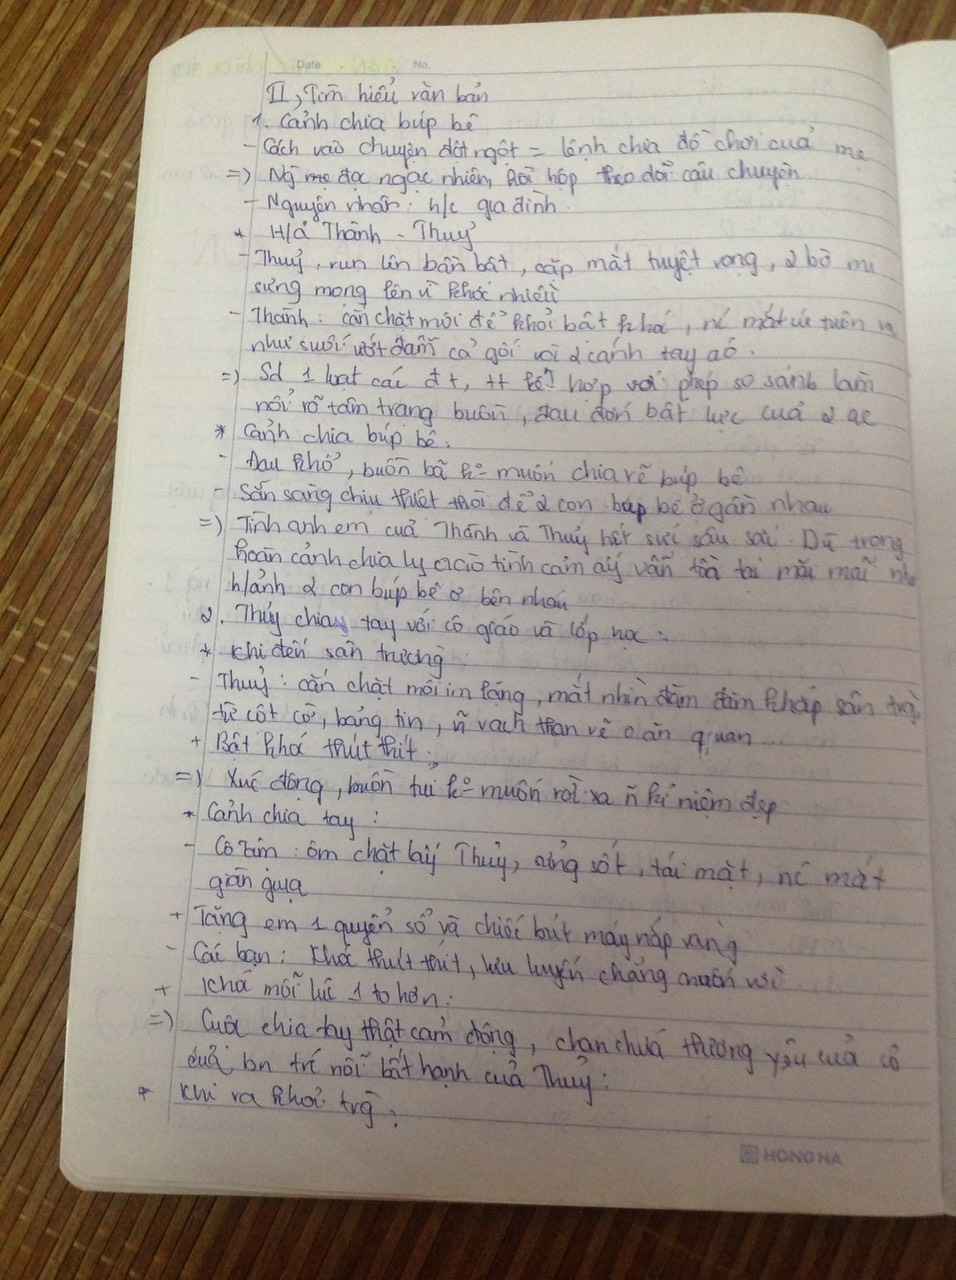 Date No.
II, Tìm hiểu văn bản
1. Cảnh chia búp bê
- Cách vào chuyện đột ngột = lệnh chia đồ chơi của mẹ
=) Ng đọc ngạc nhiên, hồi hộp theo dõi câu chuyện
- Nguyên nhân: h/c gia đình
* H/a Thành - Thuỷ
- Thuỷ, run lên bần bật, cặp mắt tuyệt vọng, 2 bờ mi
sưng mọng lên vì khóc nhiều
- Thành: cắn chặt môi để khỏi bật khóc, nc mắt cứ tuôn ra
như suối ướt đầm cả gối và 2 cánh tay áo.
=) Sd 1 loạt các đt, tt kết hợp với phép so sánh làm
nổi rõ tâm trạng buồn, đau đớn bất lực của 2 ae
* Cảnh chia búp bê:
- Đau khổ, buồn bã ko muốn chia rẽ búp bê
- Sẵn sàng chịu thiệt thòi để 2 con búp bê ở gần nhau
=) Tình anh em của Thành và Thuỷ hết sức sâu sắc. Dù trong
hoàn cảnh chia ly tình cảm ấy vẫn tồn tại mãi mãi như
h/ảnh 2 con búp bê ở bên nhau
2. Thủy chia tay với cô giáo và lớp học:
* Khi đến sân trường:
- Thuỷ: cắn chặt môi im lặng, mắt nhìn đăm đăm khắp sân trg,
từ cột cờ, bảng tin, vạch than vẽ ô ăn quan
+ Bật khóc thút thít.
=) Xúc động, buồn tủi ko muốn rời xa ~n kỉ niệm đẹp
* Cảnh chia tay:
- Cô Tâm: ôm chặt lấy Thuỷ, sửng sốt, tái mặt, nc mắt
giàn giụa
+ Tặng em 1 quyển sổ và chiếc bút máy nắp vàng
- Các bạn: Khóc thút thít, lưu luyến chẳng muốn rời
+ Khóc mỗi lúc 1 to hơn:
=) Cuộc chia tay thật cảm động, chan chứa thương yêu của cô
nỗi bất hạnh của Thuỷ:
* Khi ra khỏi trg:
HONG HA